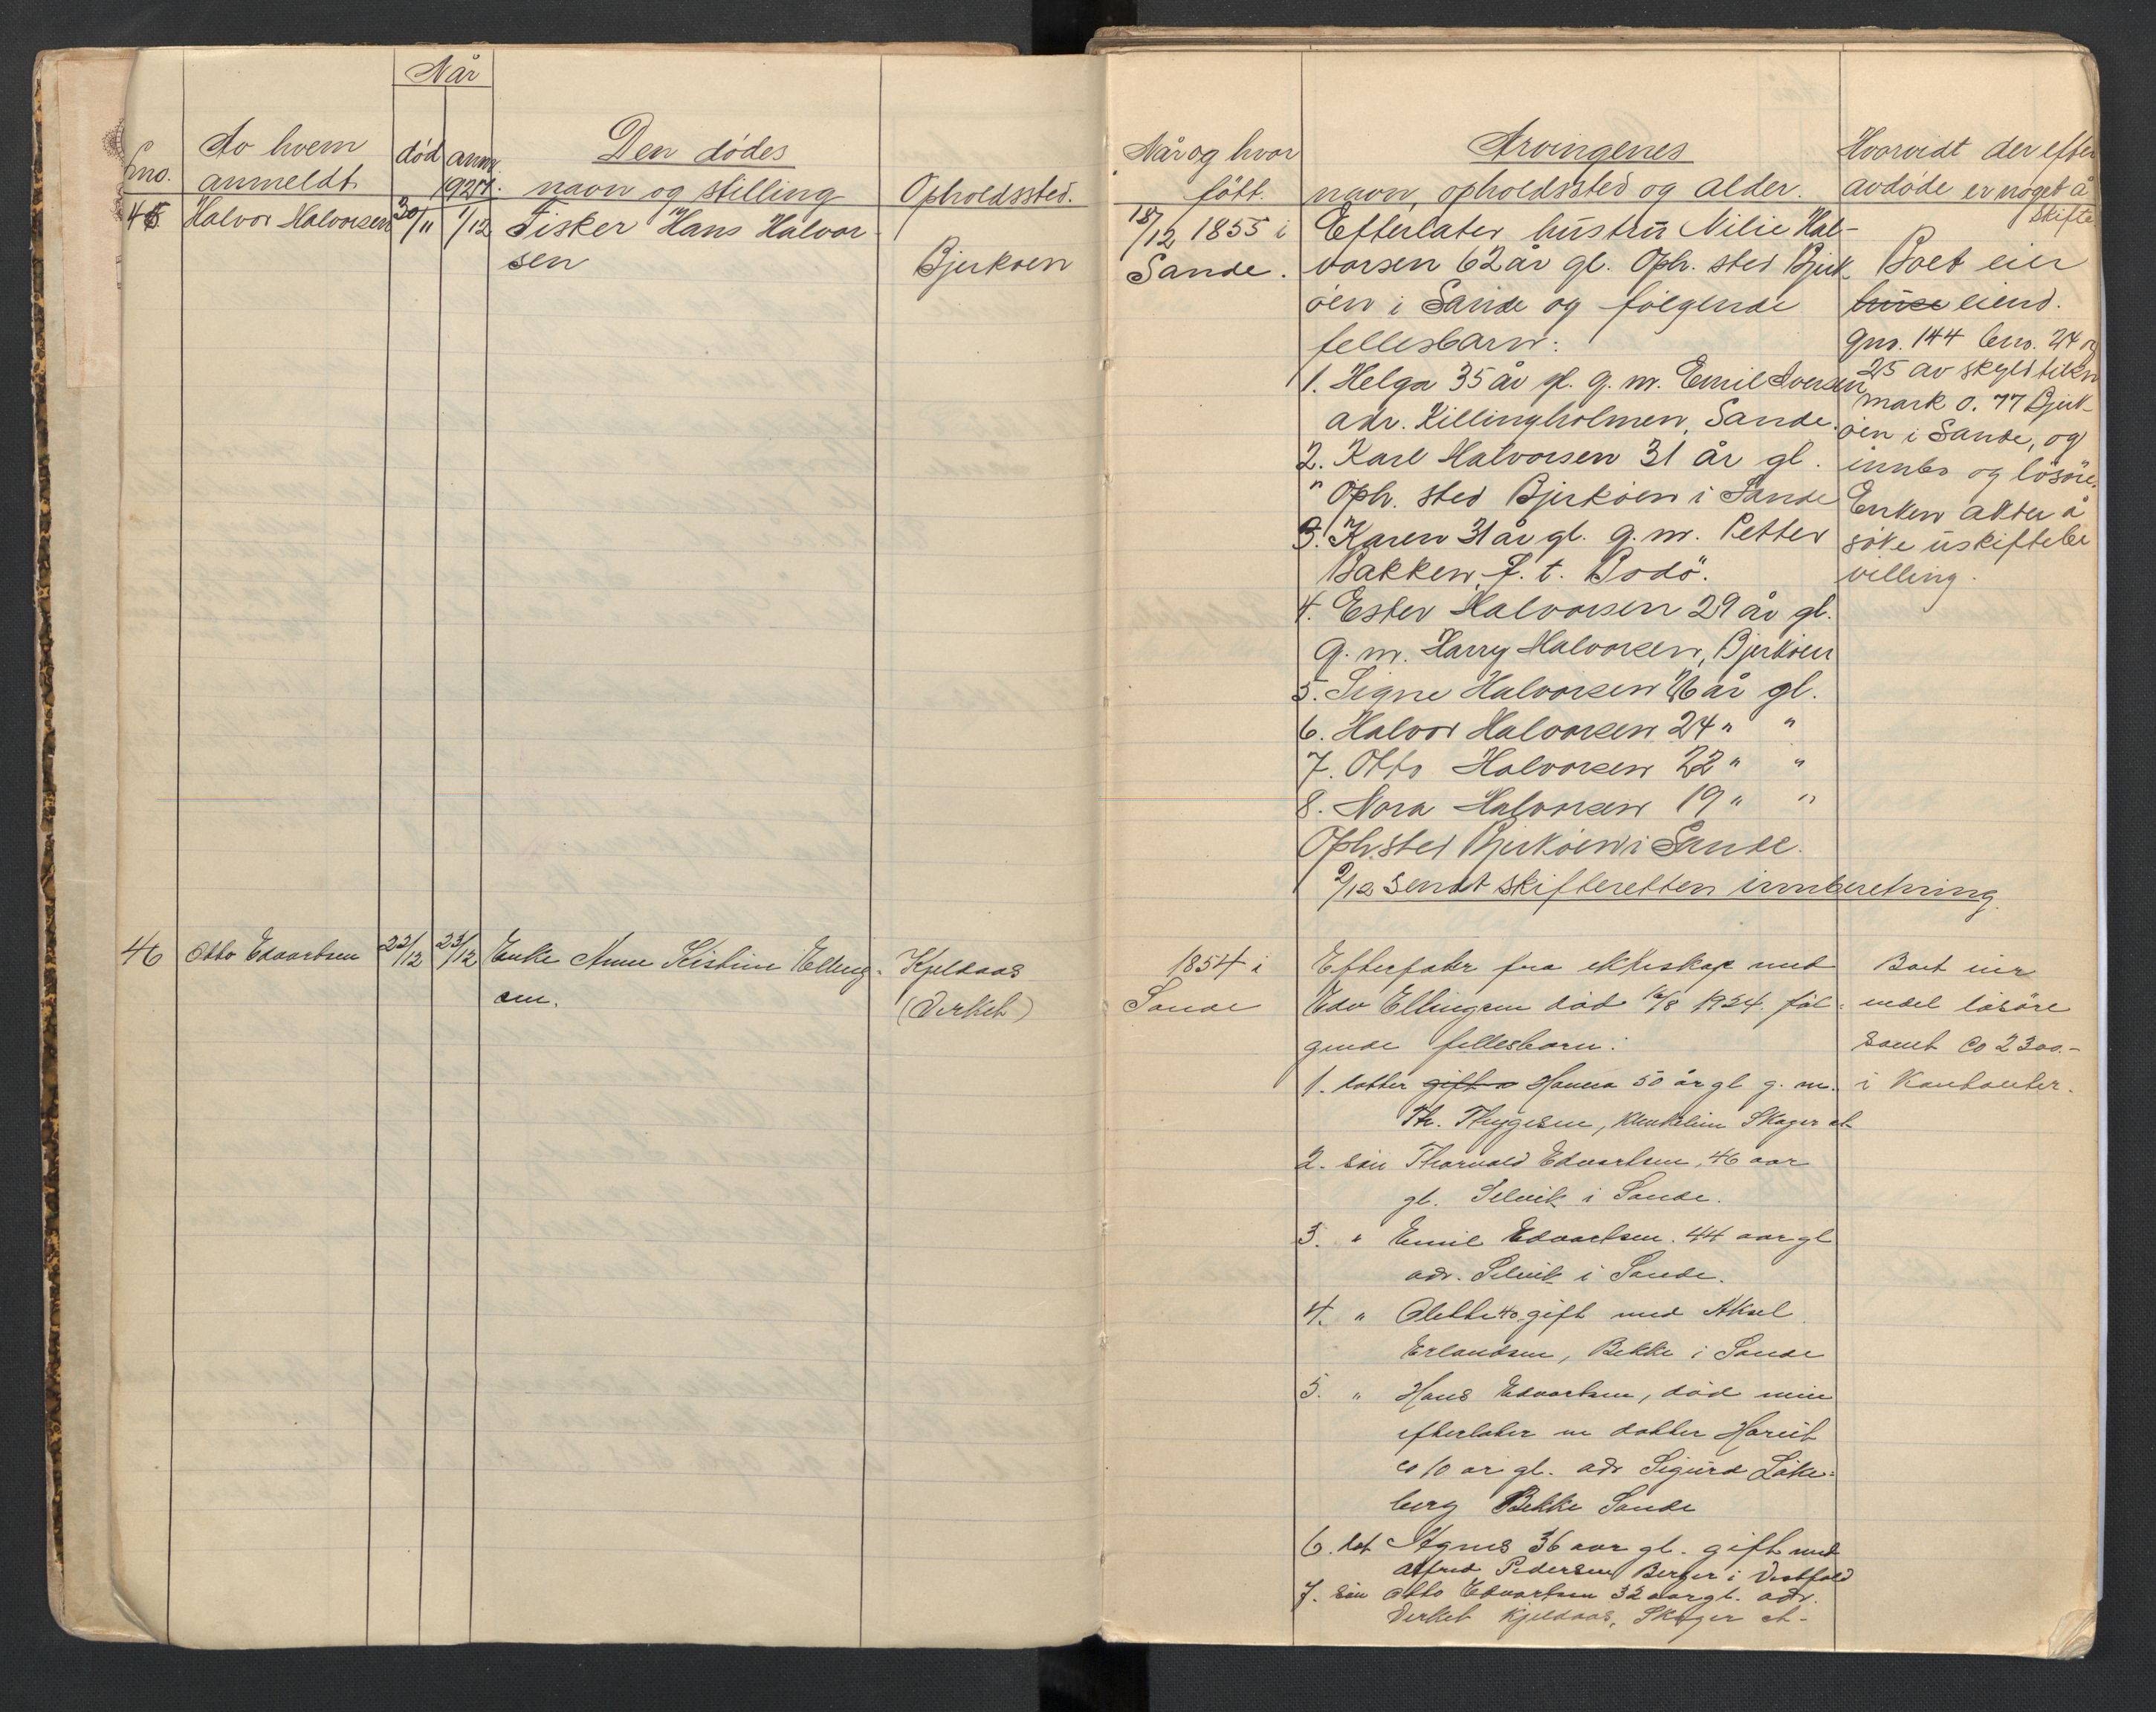 Når
Lno.
Av hvem
anmeldt.
død
anm.
192
Den dødes
navn og stilling
Opholdssted.
45
Halvor Halvorsen
30/11
1/12
Fisker Hans Halvor-
sen
Bjerköen
46
Otto Edvartsen
22/12
23/12
Enke Anne Kistine Elling-
sen.
Kjeldaas
(Verket)
Når og hvor
født.
Arvingenes
navn, opholdssted og alder.
Hvorvidt der efter
avdøde er noget å
skifte
18/12 1855 i
Sande.
Efterlater hustru Nilie Hal-
vorsen 62 år gl. Oph. sted Bjerk-
öen i Sande og følgende
fellesbarn:
1. Helga 35 år gl. g. m. Emil Iversen
adr. Killingholmen, Sande.
2. Karl Halvorsen 31 år gl.
" Oph. sted Bjerköen i Sande
3. Karen 31 år gl. g. m. Petter
Bakken, f. t. Bodö.
4. Ester Halvorsen 29 år gl.
g. m. Harry Halvorsen, Bjerköen
5. Signe Halvorsen 26 år gl.
6. Halvor Halvorsen 24 " "
7. Otto Halvorsen 22 " "
8. Nora Halvorsen 19 " "
Oph. sted Bjerköen i Sande.
2/12 sendt skifteretten innberetning.
Boet eier
huse eiend.
gno. 144 bno. 24 og
25 av skyld tilsm
mark 0.77 Bjerk-
öen i Sande, og
innbo og lösöre.
Enken akter å
söke uskiftebe
villing.
1854 i
Sande
Efterlater fra ekteskap med
Edv Ellingsen död 16/8 1924. föl-
gende fellesbarn:
1. datter gift a Hanna 50 år gl g. m.
Th. Thygesen, Skoger st
2. sön Thorvald Edvartsen, 46 aar
gl. Selvik i Sande.
3. " Emil Edvartsen. 44 aar gl
adr. Selvik i Sande.
4. " Olette 40 gift med Aksel
Erlandsen, Bekke i Sande
5. " Hans Edvartsen, död men
efterlater en datter Harriet
co 10 år gl. adr Sigurd Löke-
berg Bekke Sande
6. dat Agnes 36 aar gl. gift med
Alfred Pedersen Berger i Vestfold
7. sön Otto Edvartsen 32 aar gl. adr.
Verket Kjeldaas, Skoger st.
Boet eier
endel lösöre
samt co 2300.-
i kontanter.